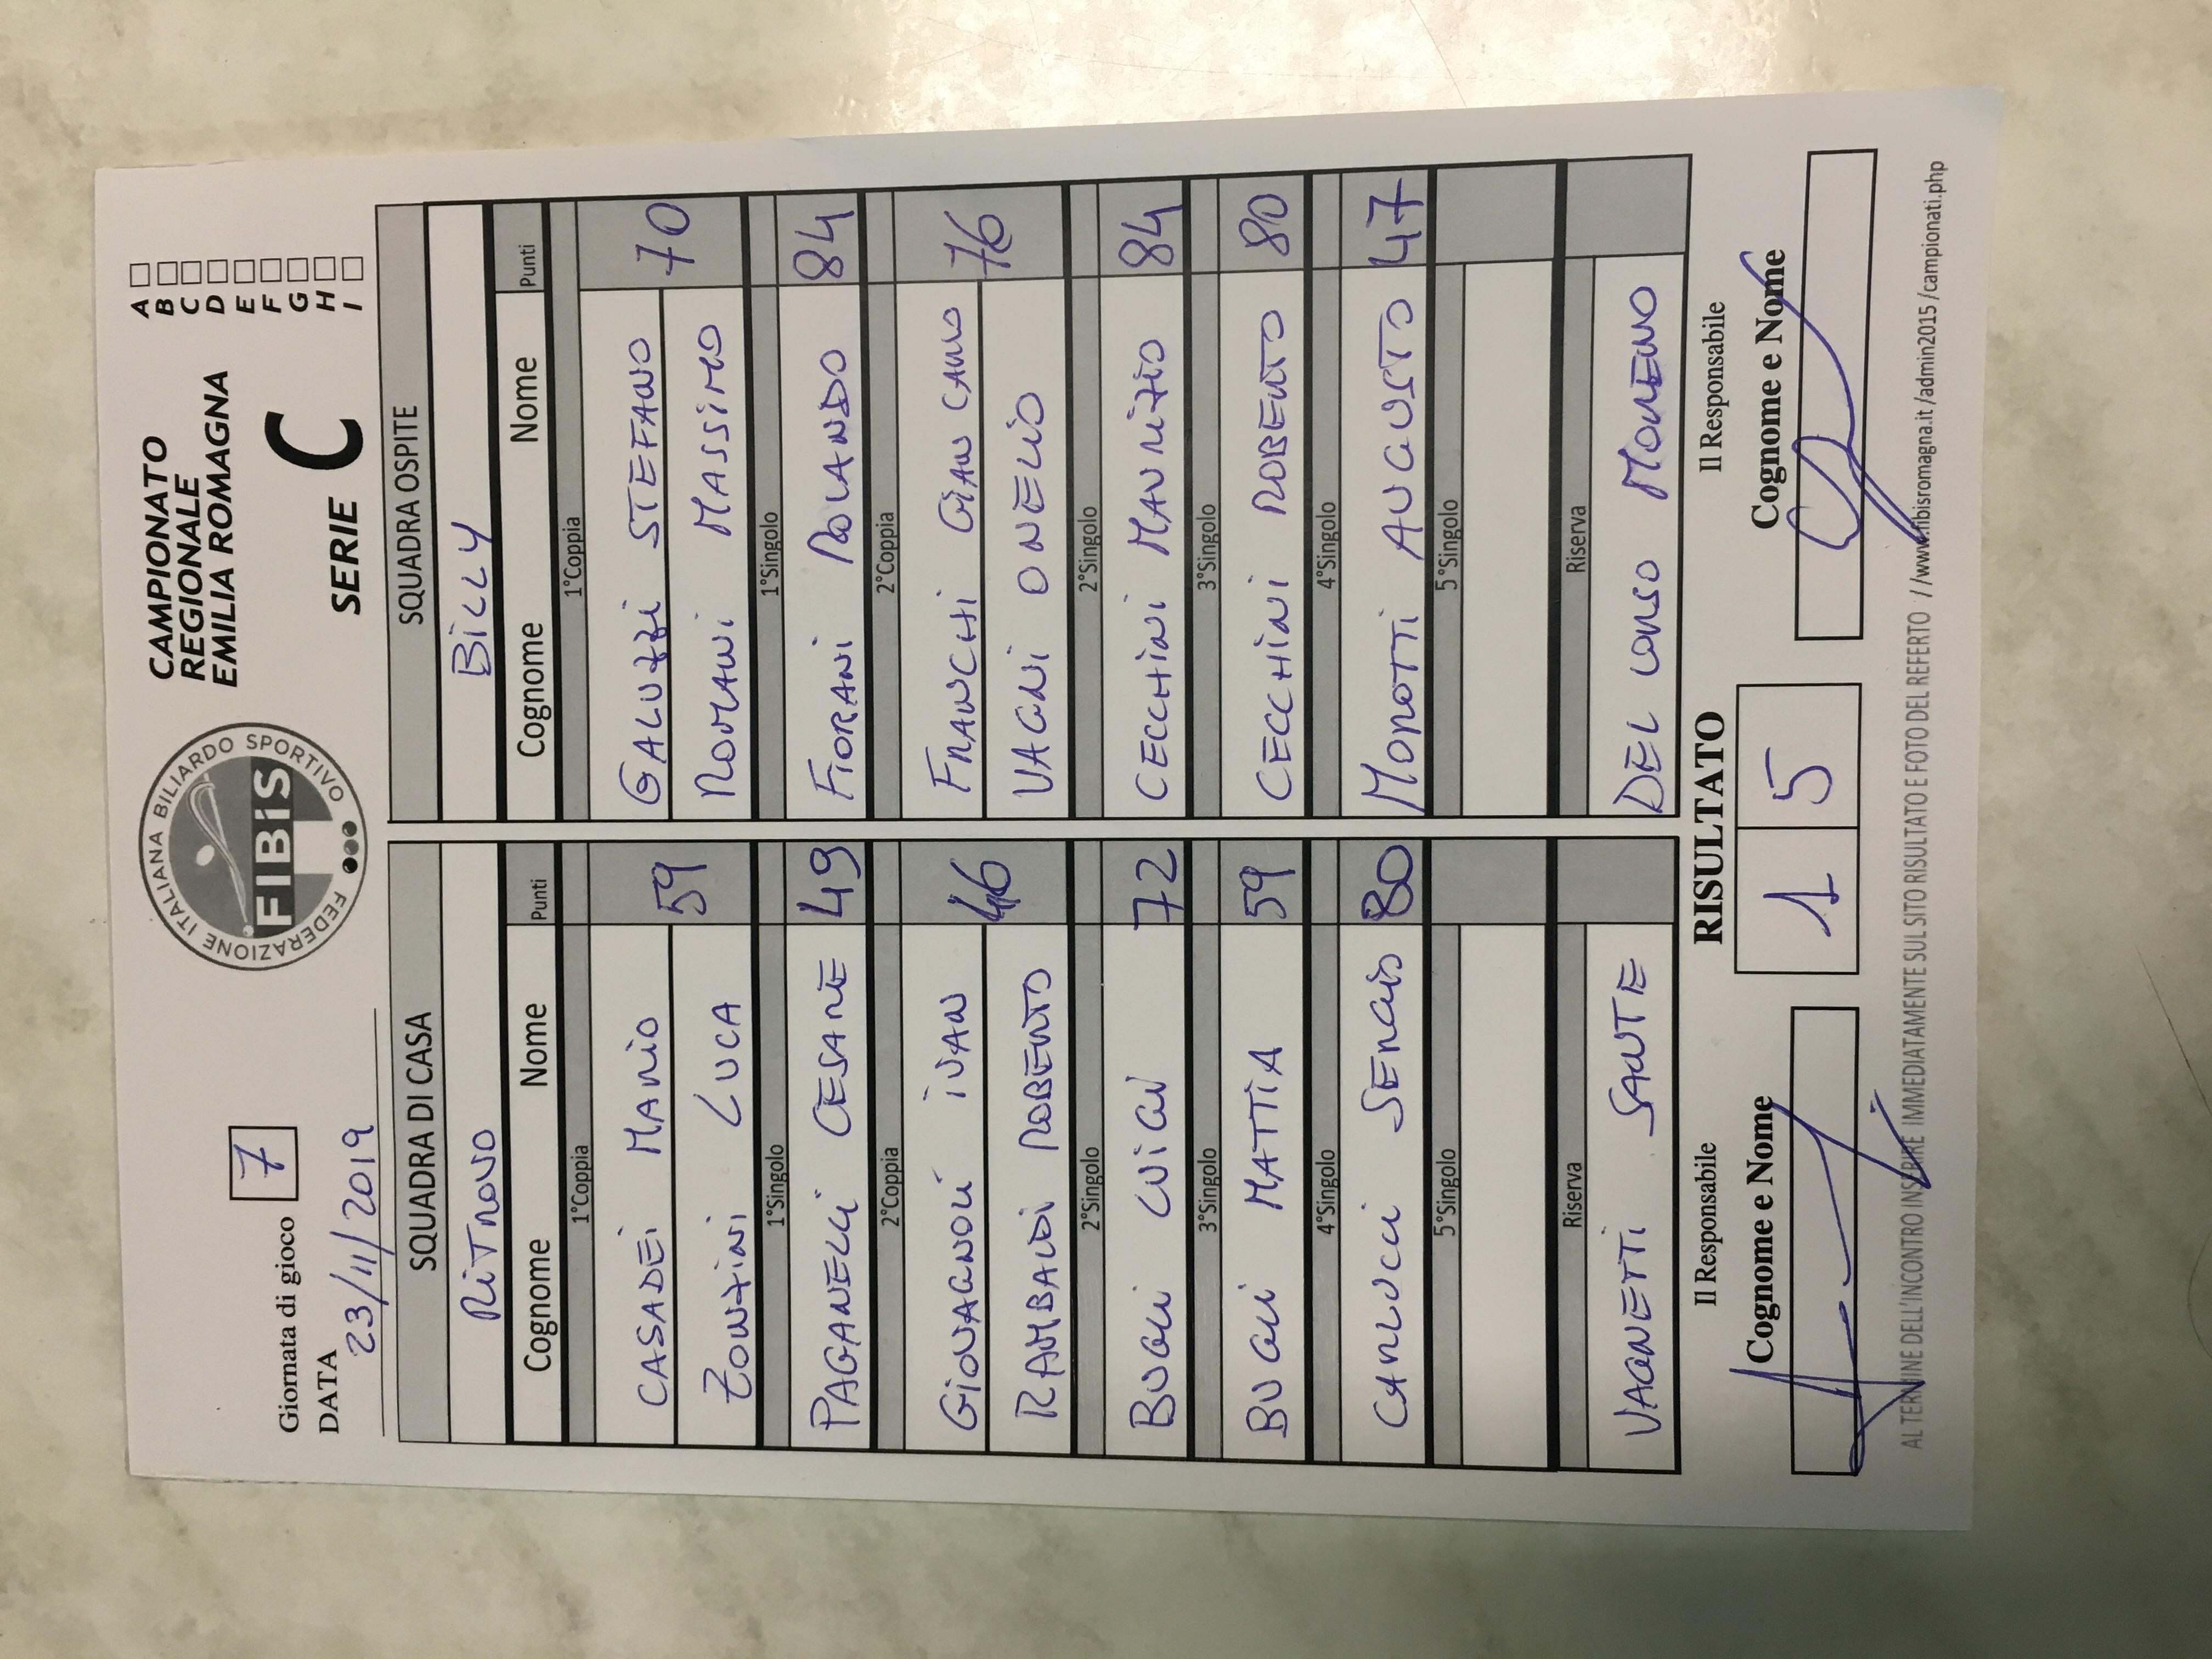 Giornata di gioco 7
DATA
23/11/2019
FEDERAZIONE ITALIANA BILIARDO SPORTIVO
FIBiS
CAMPIONATO
REGIONALE
EMILIA ROMAGNA
SERIE C
A
B
C
D
E
F
G
H
I
SQUADRA DI CASA
RITROVO
Cognome Nome Punti
1°Coppia
CASADEI MARIO 59
ZONZINI LUCA
1°Singolo
PAGANELLI CESARE 49
2°Coppia
GIOVAGNOLI IVAN 46
RAMBALDI ROBERTO
2°Singolo
BUGLI LUIGI 72
3°Singolo
BUGLI MATTIA 59
4°Singolo
CARLUCCI SERGIO 80
5°Singolo
Riserva
VAGNETTI SANTE
SQUADRA OSPITE
BILLY
Cognome Nome Punti
1°Coppia
GALUZZI STEFANO 70
ROMANI MASSIMO
1°Singolo
FIORANI ROLANDO 84
2°Coppia
FRANCHI GIAN CARLO 76
VAGNI ONELIO
2°Singolo
CECCHINI MAURIZIO 84
3°Singolo
CECCHINI ROBERTO 80
4°Singolo
MOROTTI AUGUSTO 47
5°Singolo
Riserva
DEL CORSO MORENO
Il Responsabile
Cognome e Nome
RISULTATO
1 5
Il Responsabile
Cognome e Nome
AL TERMINE DELL'INCONTRO INSERIRE IMMEDIATAMENTE SUL SITO RISULTATO E FOTO DEL REFERTO //www.fibisromagna.it /admin2015 /campionati.php